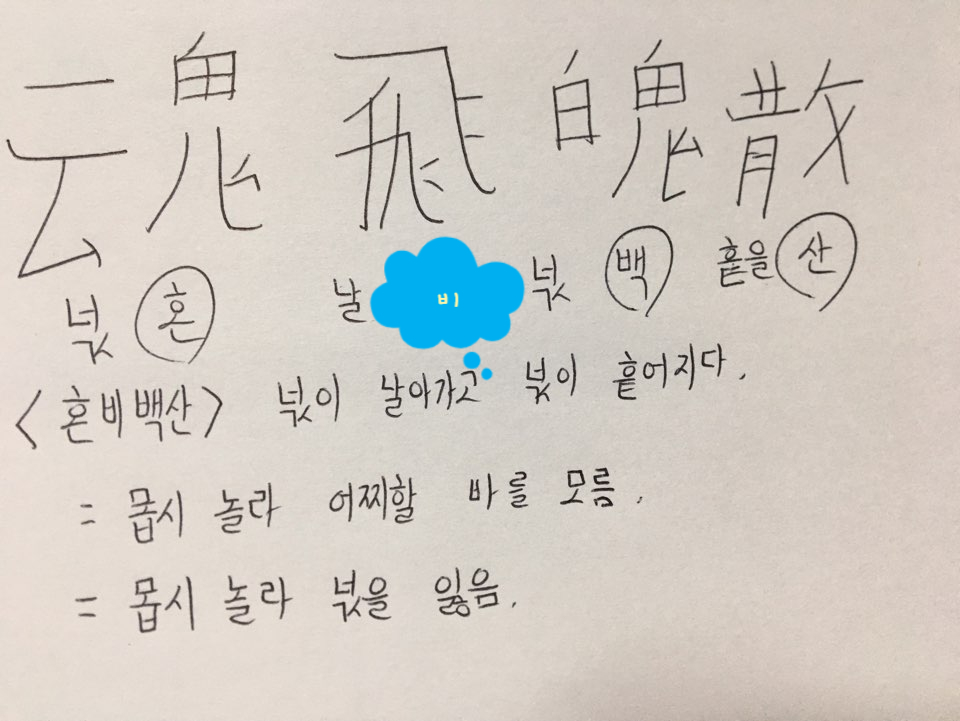 魂 飛 魄 散
넋 혼 날 비 넋 백 흩을 산
<혼비백산> 넋이 날아가고 넋이 흩어지다.
= 몹시 놀라 어찌할 바를 모름.
= 몹시 놀라 넋을 잃음.